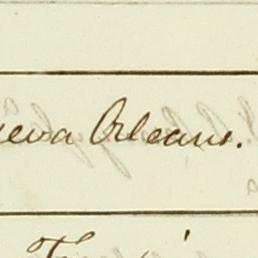 ueva Orleans.